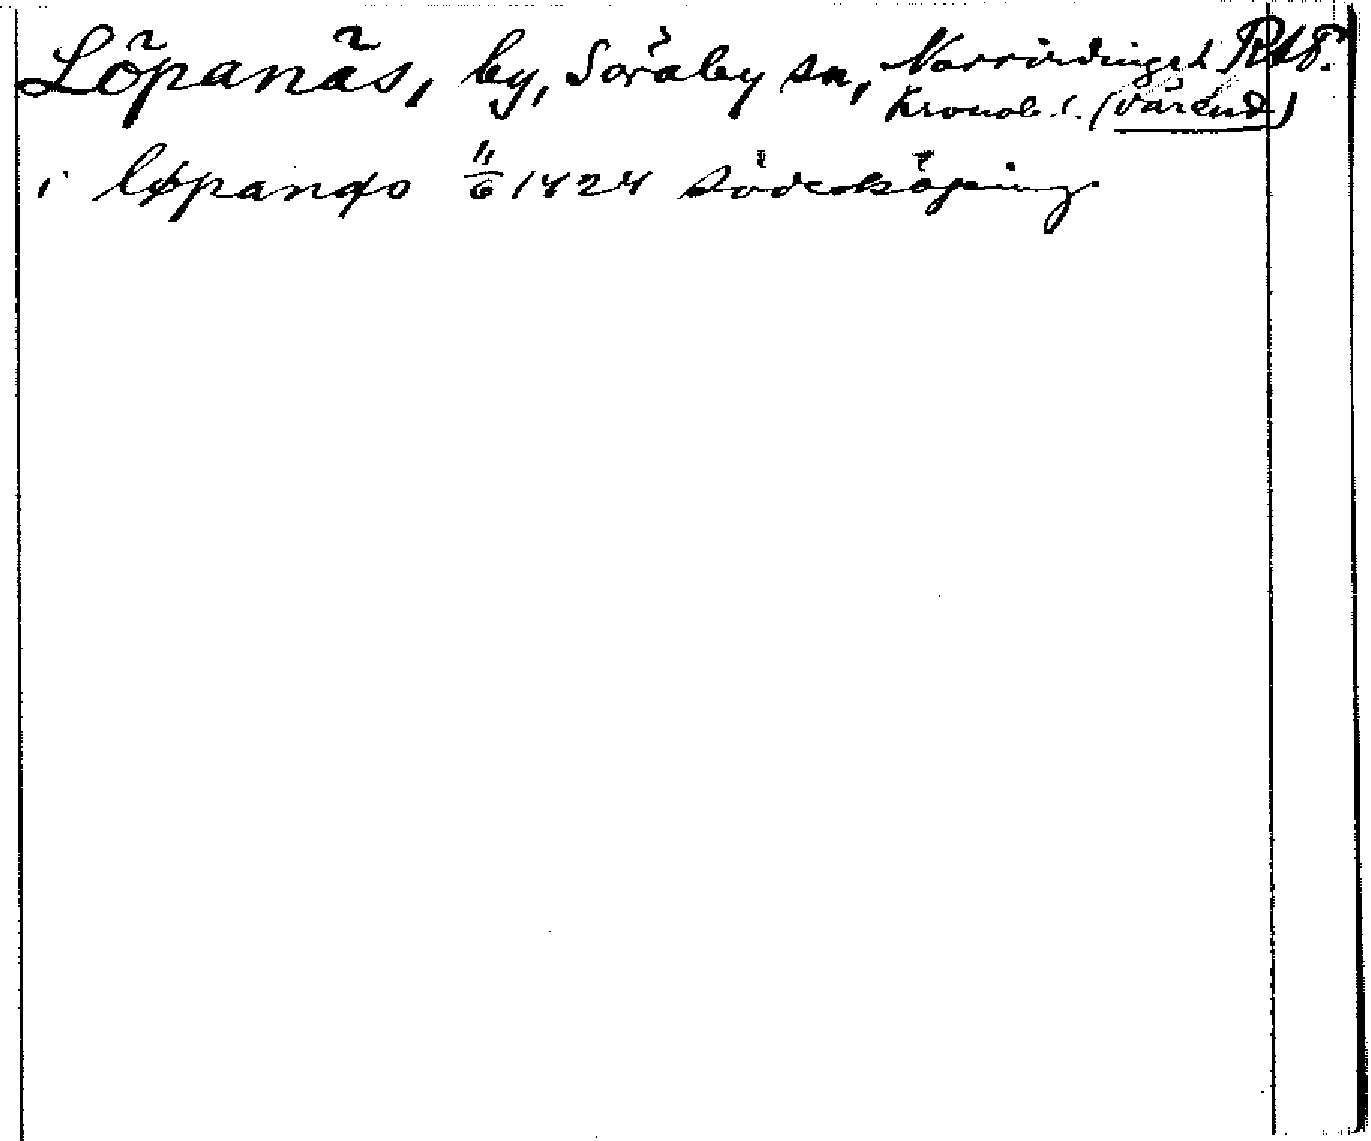 Löpanäs, by, Söraby sn, Norrvidinge h RAp.
Kronob. l. (Värend)
i løpanæs 11/6 1424 Söderköping